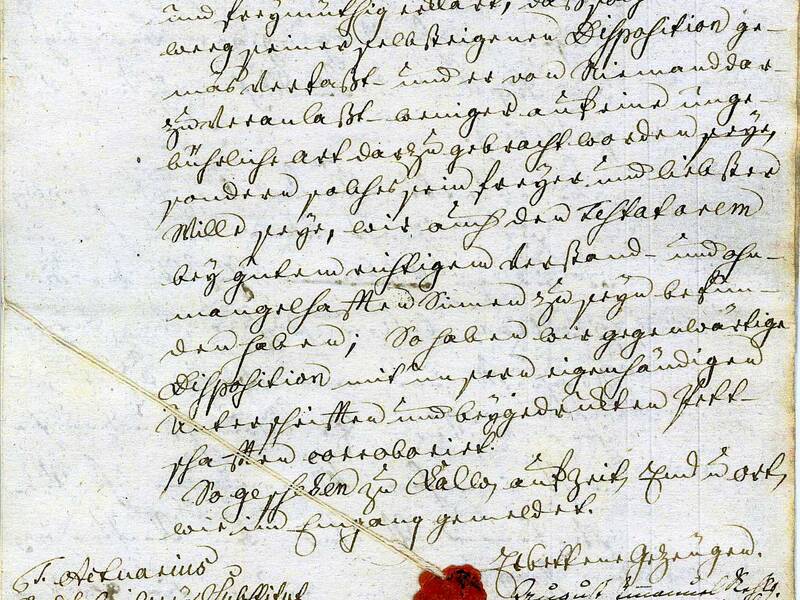 und freymüthig erklärt, daß
weeg seiner selbsteigenen Disposition ge-
mäs verfaßt und er von Niemand dar-
zu veranlaßt weniger auf eine unge-
bührliche art darzu gebracht worden seye,
sondern solches sein freyer und liebster
Wille seye, wir auch den Testatorem
bey gutem richtigem Verstand- und ohn-
mangelhafften Sinnen zu seyn befun-
den haben; So haben wir gegenwärtige
Disposition mit unsern eigenhändigen
Unterschrifften und beygedruckten Pett-
schafften corroborirt.
So geschehen zu auf zeit, und ort,
wie im Eingang gemeldet.
Erbettene Gezeugen.
T. Actuarius
Substitut
August Emanuel